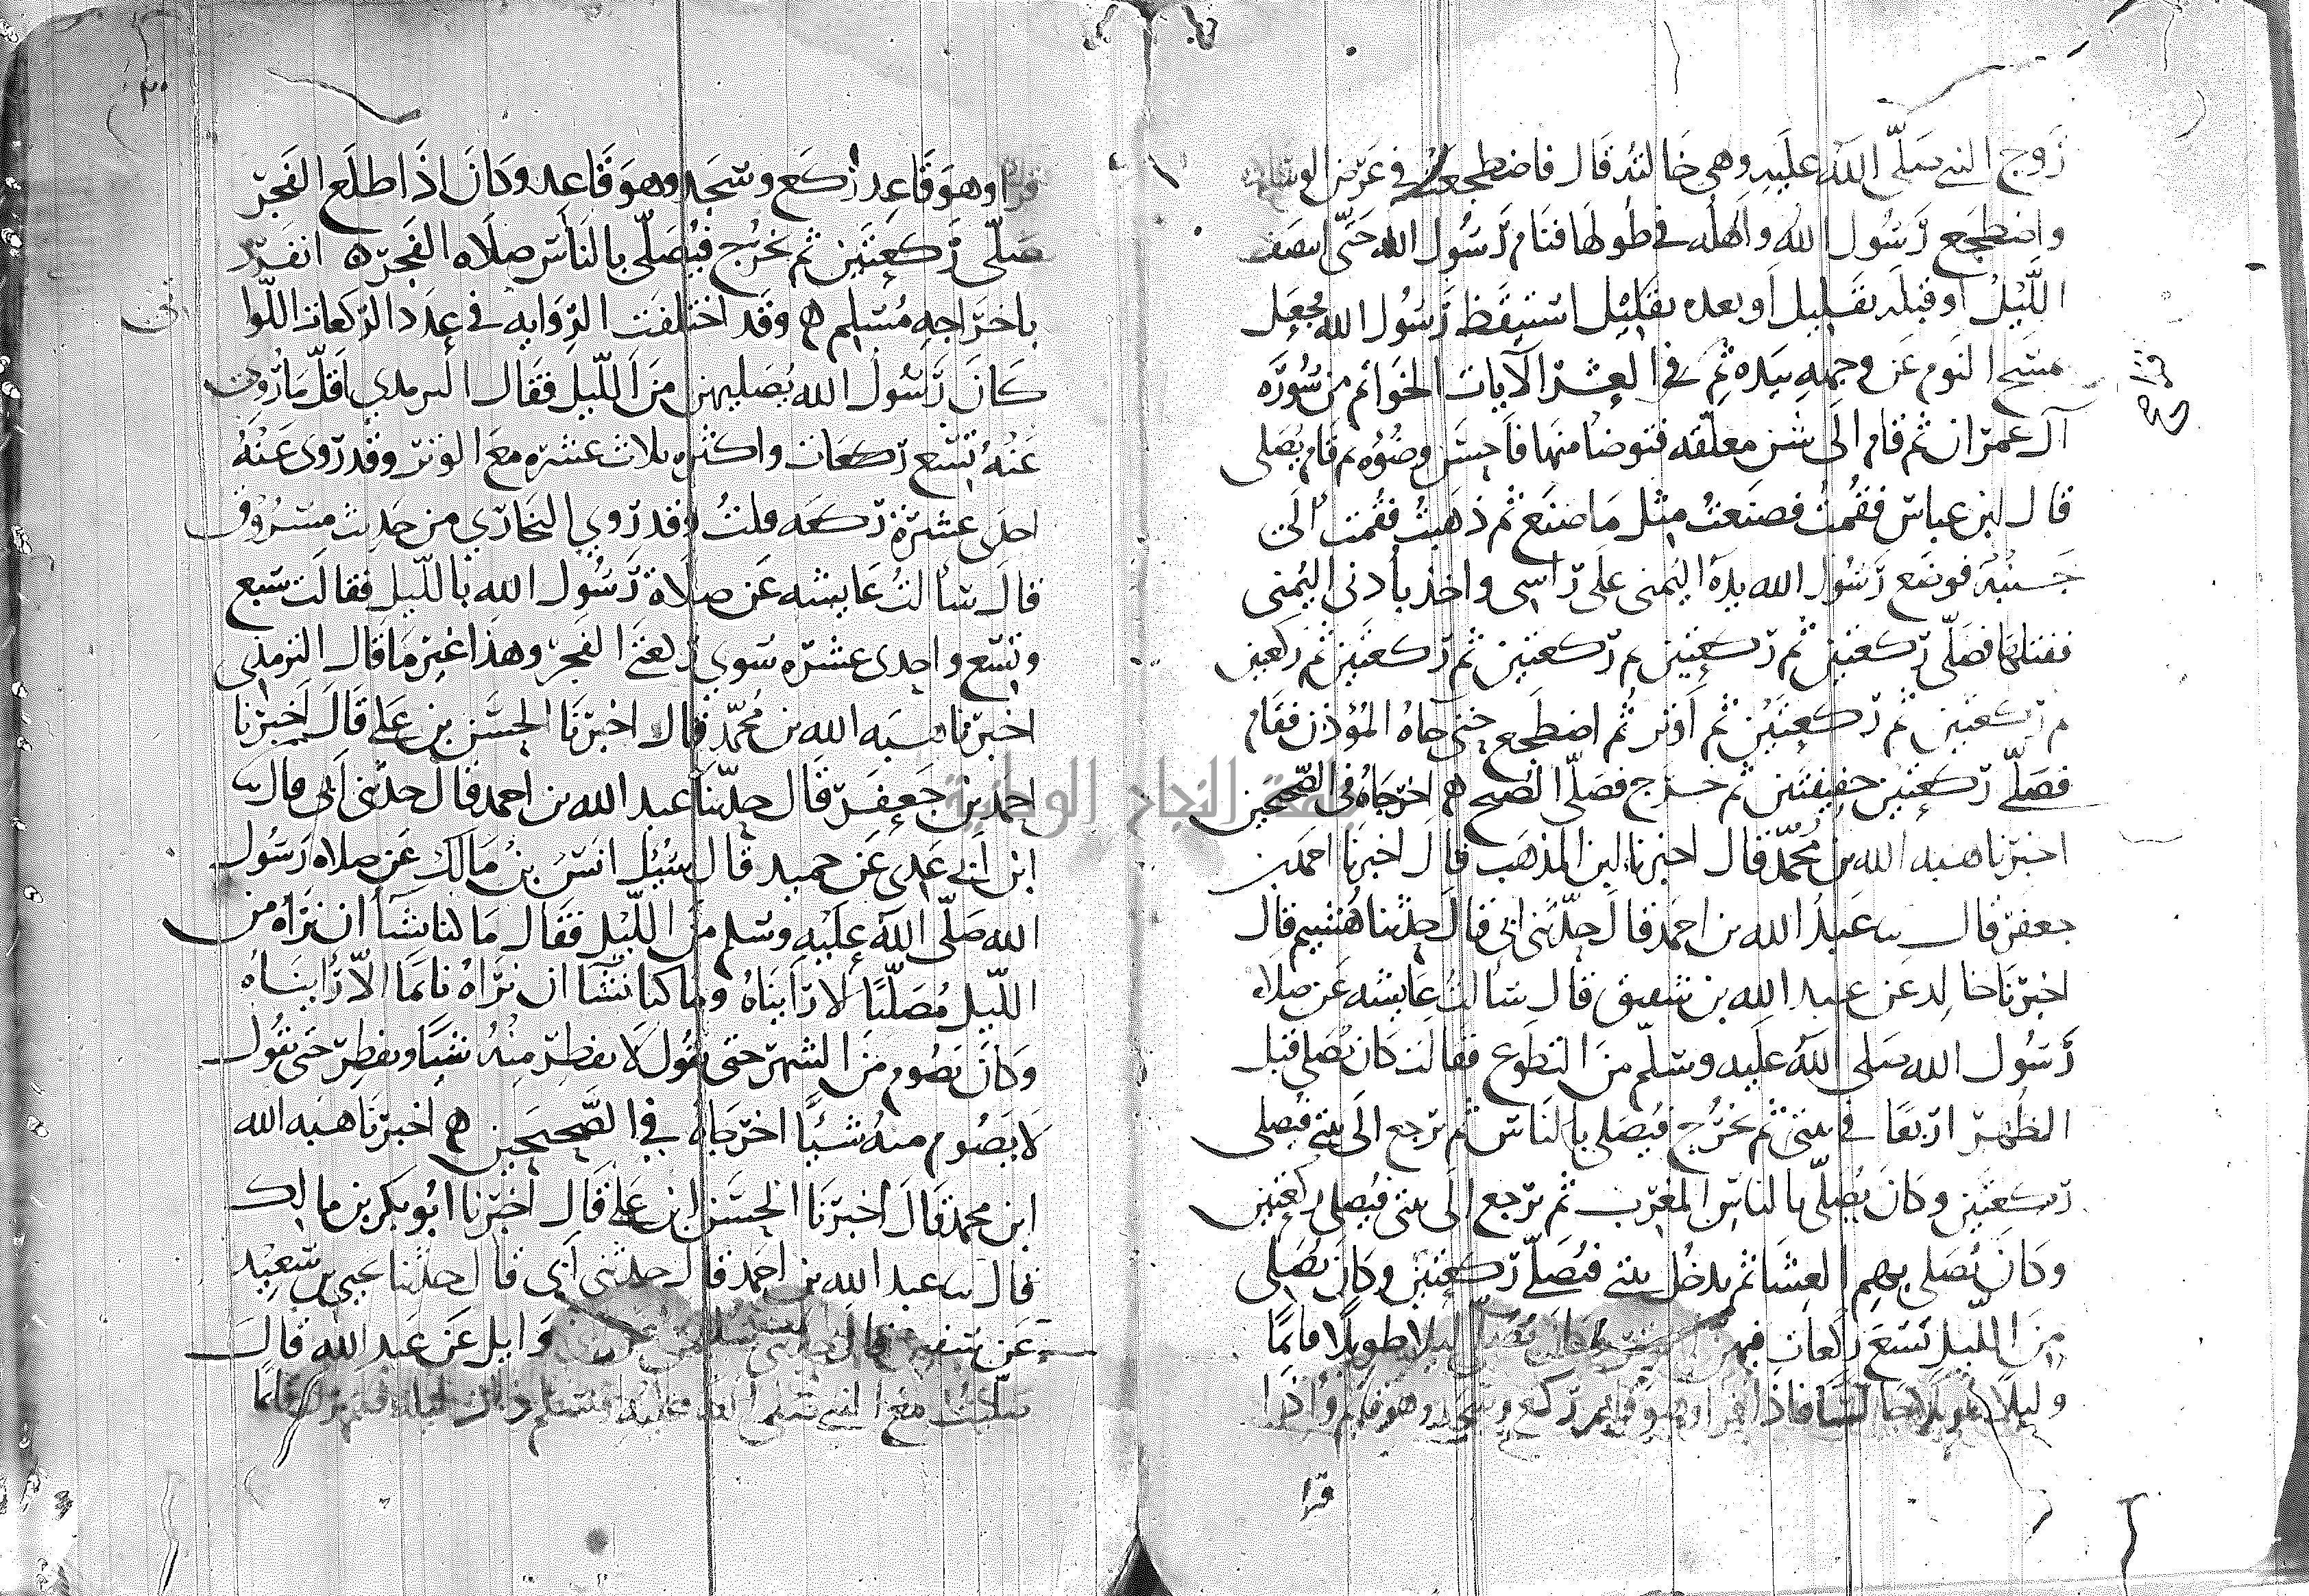 زوج النبي صلى الله عليه وهي خالته قال فاضطجعت في عرض الوساده
واضطجع رسول الله واهله في طولها فنام رسول الله حتى انتصف
الليل أو قبله بقليل أو بعده بقليل استيقظ رسول الله فجعل
يمسح النوم عن وجهه بيده ثم قرا العشر الآيات الخواتم من سورة
آل عمران ثم قام الى شن معلقه فتوضأ منها فاحسن وضوءه ثم قام يصلي
قال ابن عباس فقمت فصنعت مثل ما صنع ثم ذهبت فقمت الى
جنبه فوضع رسول الله يده اليمنى على راسي واخذ بأذني اليمنى
ففتلها فصلى ركعتين ثم ركعتين ثم ركعتين ثم ركعتين ثم ركعتين
ثم ركعتين ثم ركعتين ثم أوتر ثم اضطجع حتى جاه المؤذن فقام
فصلى ركعتين خفيفتين ثم خرج فصلى الصبح ه اخرجاه في الصحيحين
اخبرنا هبه الله بن محمد قال اخبرنا ابن المذهب قال اخبرنا احمد بن
جعفر قال سا عبد الله بن احمد قال حدثني ابي قال حدثنا هشيم قال
اخبرنا خالد عن عبد الله بن شقيق قال سألت عايشه عن صلاه
رسول الله صلى الله عليه وسلم من التطوع فقالت كان يصلي قبل
الظهر اربعا في بيتي ثم يخرج فيصلي بالناس ثم يرجع الى بيتي فيصلي
ركعتين وكان يصلي بالناس المغرب ثم يرجع الى بيتي فيصلي ركعتين
وكان يصلي بهم العشا ثم يدخل بيتي فيصلي ركعتين وكان يصلي
من الليل تسع ركعات فيهن الوتر وكان يصلي ليلا طويلا قايما
وليلا طويلا جالسا فاذا قرا وهو قايم ركع وسجد وهو قايم واذا
قرا
٢٠
قرا وهو قاعد ركع وسجد وهو قاعد وكان اذا طلع الفجر
صلى ركعتين ثم يخرج فيصلي بالناس صلاه الفجر ه انفرد
باخراجه مسلم ه وقد اختلفت الروايه في عدد الركعات اللواتي
كان رسول الله يصليهن من الليل فقال الترمدي اقل ما روي
عنه تسع ركعات واكثره ثلاث عشره مع الوتر وقد روى عنه
احدى عشرة ركعه قلت وقد روي البخاري من حديث مسروق
قال سألت عايشه عن صلاة رسول الله بالليل فقالت سبع
وتسع واحدى عشره سوي ركعتي الفجر وهذا غير ما قال الترمذي
اخبرنا هبه الله بن محمد قال اخبرنا الحسن بن علي قال اخبرنا
احمد بن جعفر قال حدثنا عبد الله بن احمد قال حدثني أبي قال سا
ابن أبي عدي عن حميد قال سئل انس بن مالك عن صلاه رسول
الله صلى الله عليه وسلم من الليل فقال ما كنا نشأ ان نراه من
الليل مصليا الا رأيناه وما كنا نشأ ان نراه نائما الا رأيناه
وكان يصوم من الشهر حتى نقول لا يفطر منه شيا ويفطر حتى نقول
لا يصوم منه شيئا اخرجاه في الصحيحين ه اخبرنا هبه الله
ابن محمد قال اخبرنا الحسن ابن علي قال اخبرنا ابو بكر بن مالك
قال سا عبد الله بن احمد قال حدثني أبي قال حدثنا يحيى بن سعيد
عن سفين قال حدثني سليمن عن وايل عن عبد الله قال
صليت مع النبي صلى الله عليه وسلم ذات ليله فلم يزل قايما
جامعة النجاح الوطنية